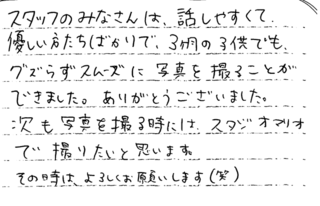 スタッフのみなさんは、話しやすくて、
優しい方たちばかりで、3ヶ月の子供でも、
グズらずスムーズに写真を撮ることが
できました。ありがとうございました。
次も写真を撮る時には、スタジオマリオ
で撮りたいと思います。
その時は、よろしくお願いします(笑)